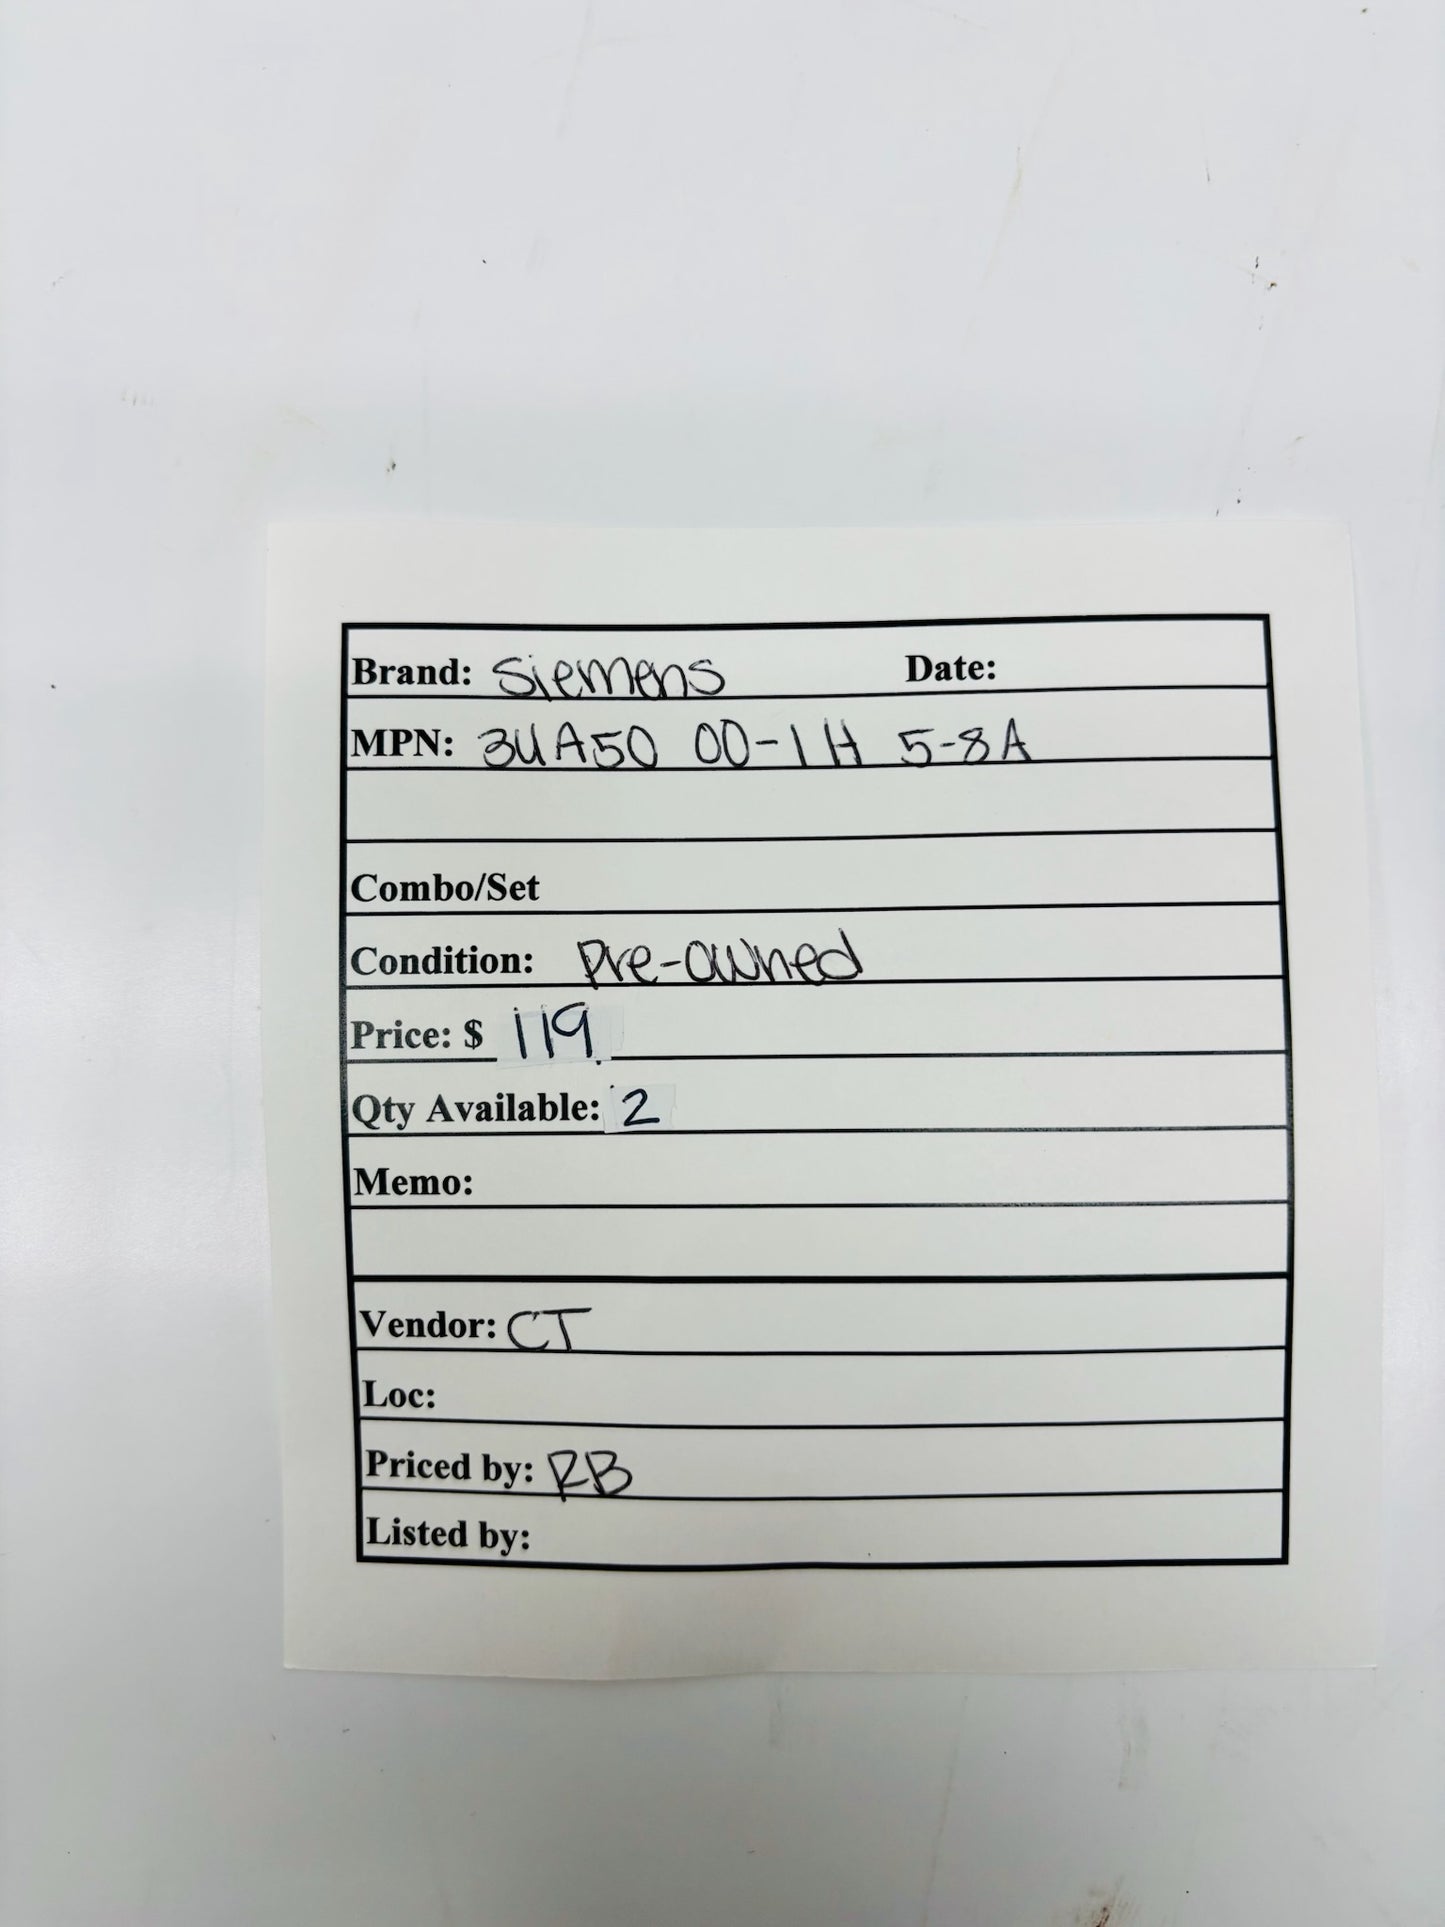 Brand: Siemens Date:
MPN: 3UA50 00-1H 5-8A
Combo/Set
Condition: Pre-owned
Price: $ 119
Qty Available: 2
Memo:
Vendor: CT
Loc:
Priced by: RB
Listed by: